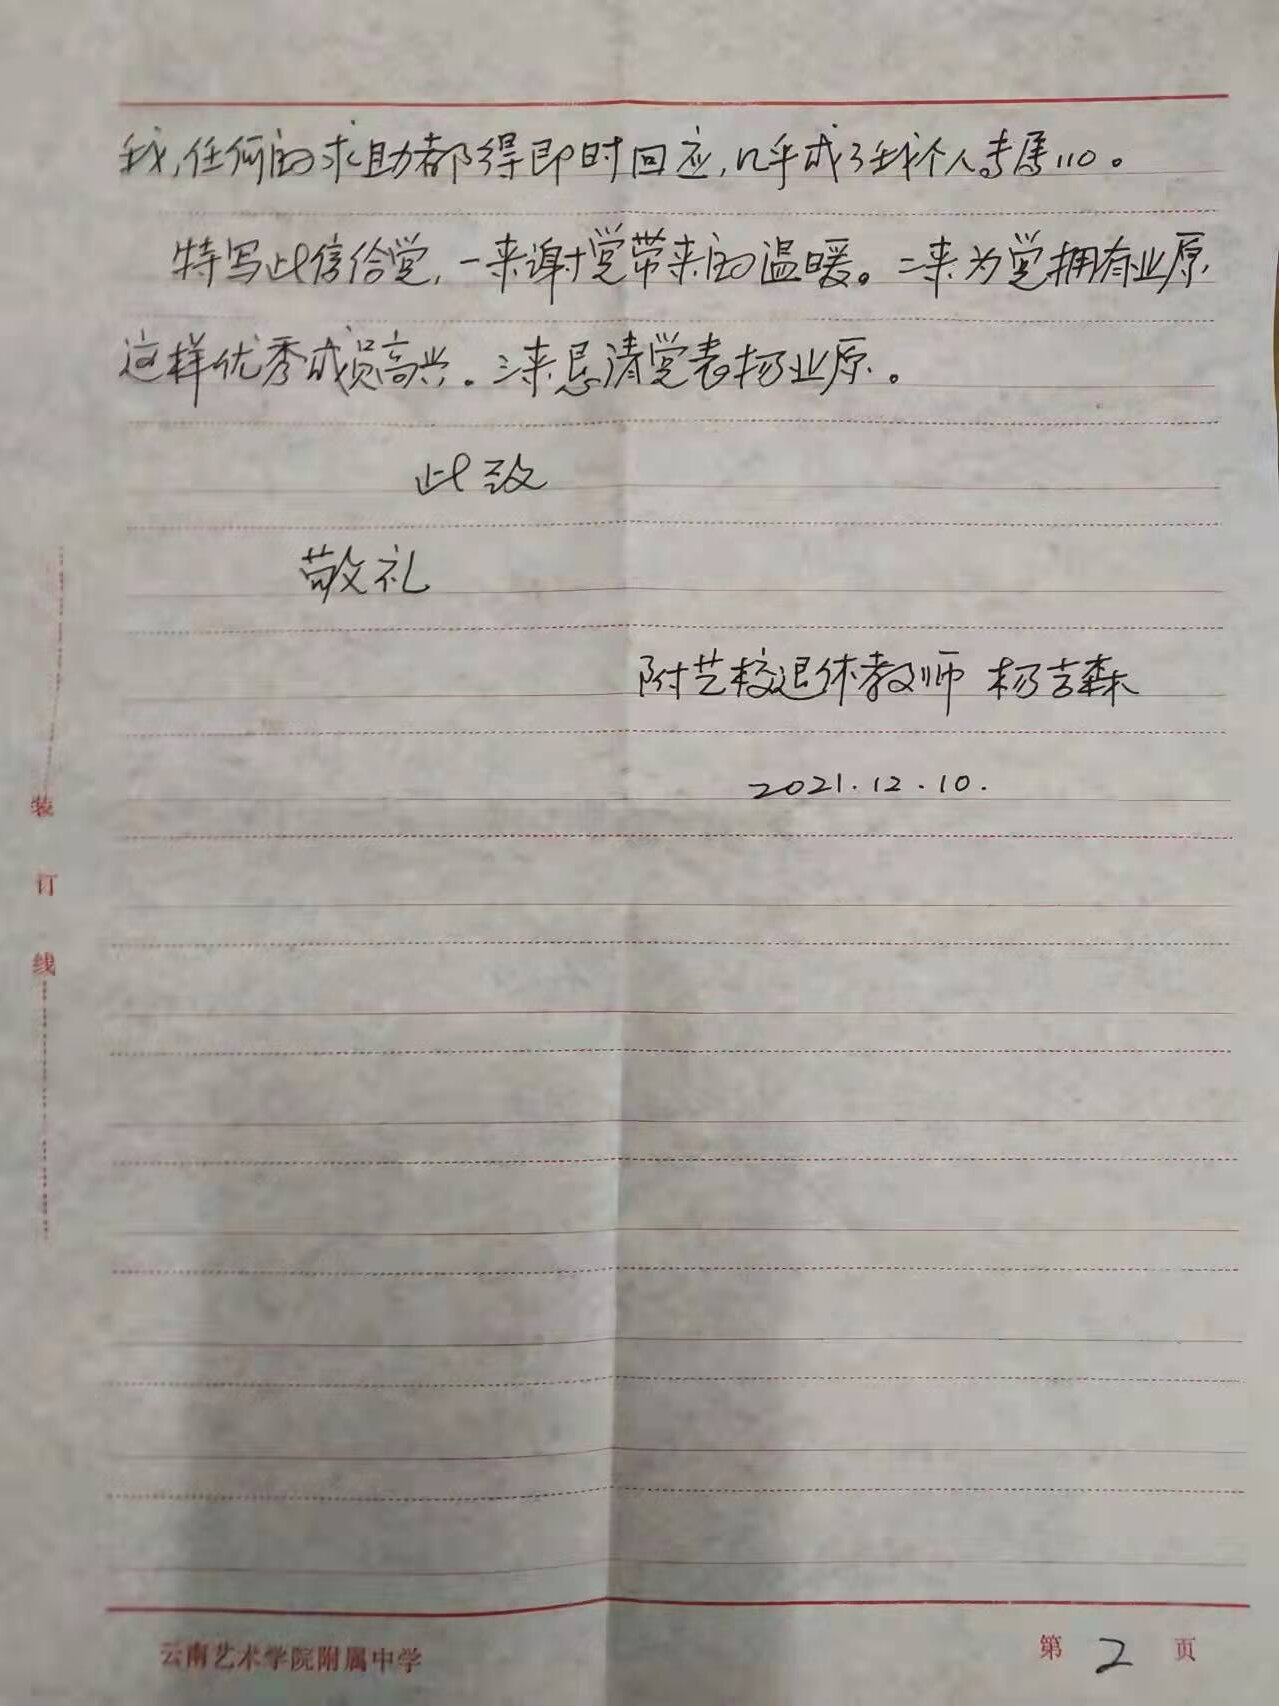 我,任何的求助都得即时回应,几乎成了我个人专属110。
特写此信给党,一来谢党带来的温暖。二来为党拥有业原
这样优秀成员高兴。三来恳请党表扬业原。
此致
敬礼
附艺校退休教师 杨吉森
2021.12.10.
装
订
线
云南艺术学院附属中学
第 2 页